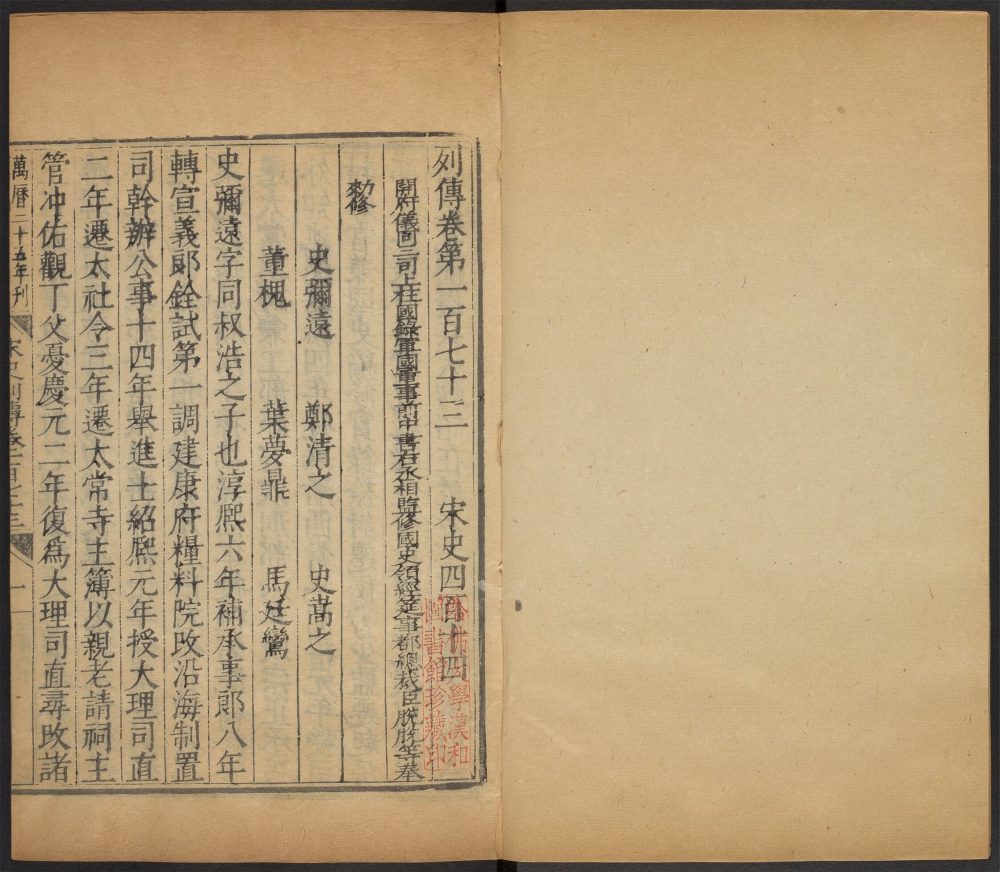 列傳卷第一百七十三 宋史四百十四
開府儀同三司上柱國錄軍國重事前中書右丞相監修國史領經筵事都總裁臣脫脫等奉
勑修
史彌遠 鄭清之 史嵩之
董槐 葉夢鼎 馬廷鸞
史彌遠字同叔浩之子也淳熙六年補承事郎八年
轉宣義郎銓試第一調建康府糧料院改沿海制置
司幹辦公事十四年舉進士紹熙元年授大理司直
二年遷太社令三年遷太常寺主簿以親老請祠主
管冲佑觀丁父憂慶元二年復爲大理司直尋改諸
萬曆二十五年刊 宋史列傳卷一百七十三 一
哈佛大學漢和
圖書館珍藏印